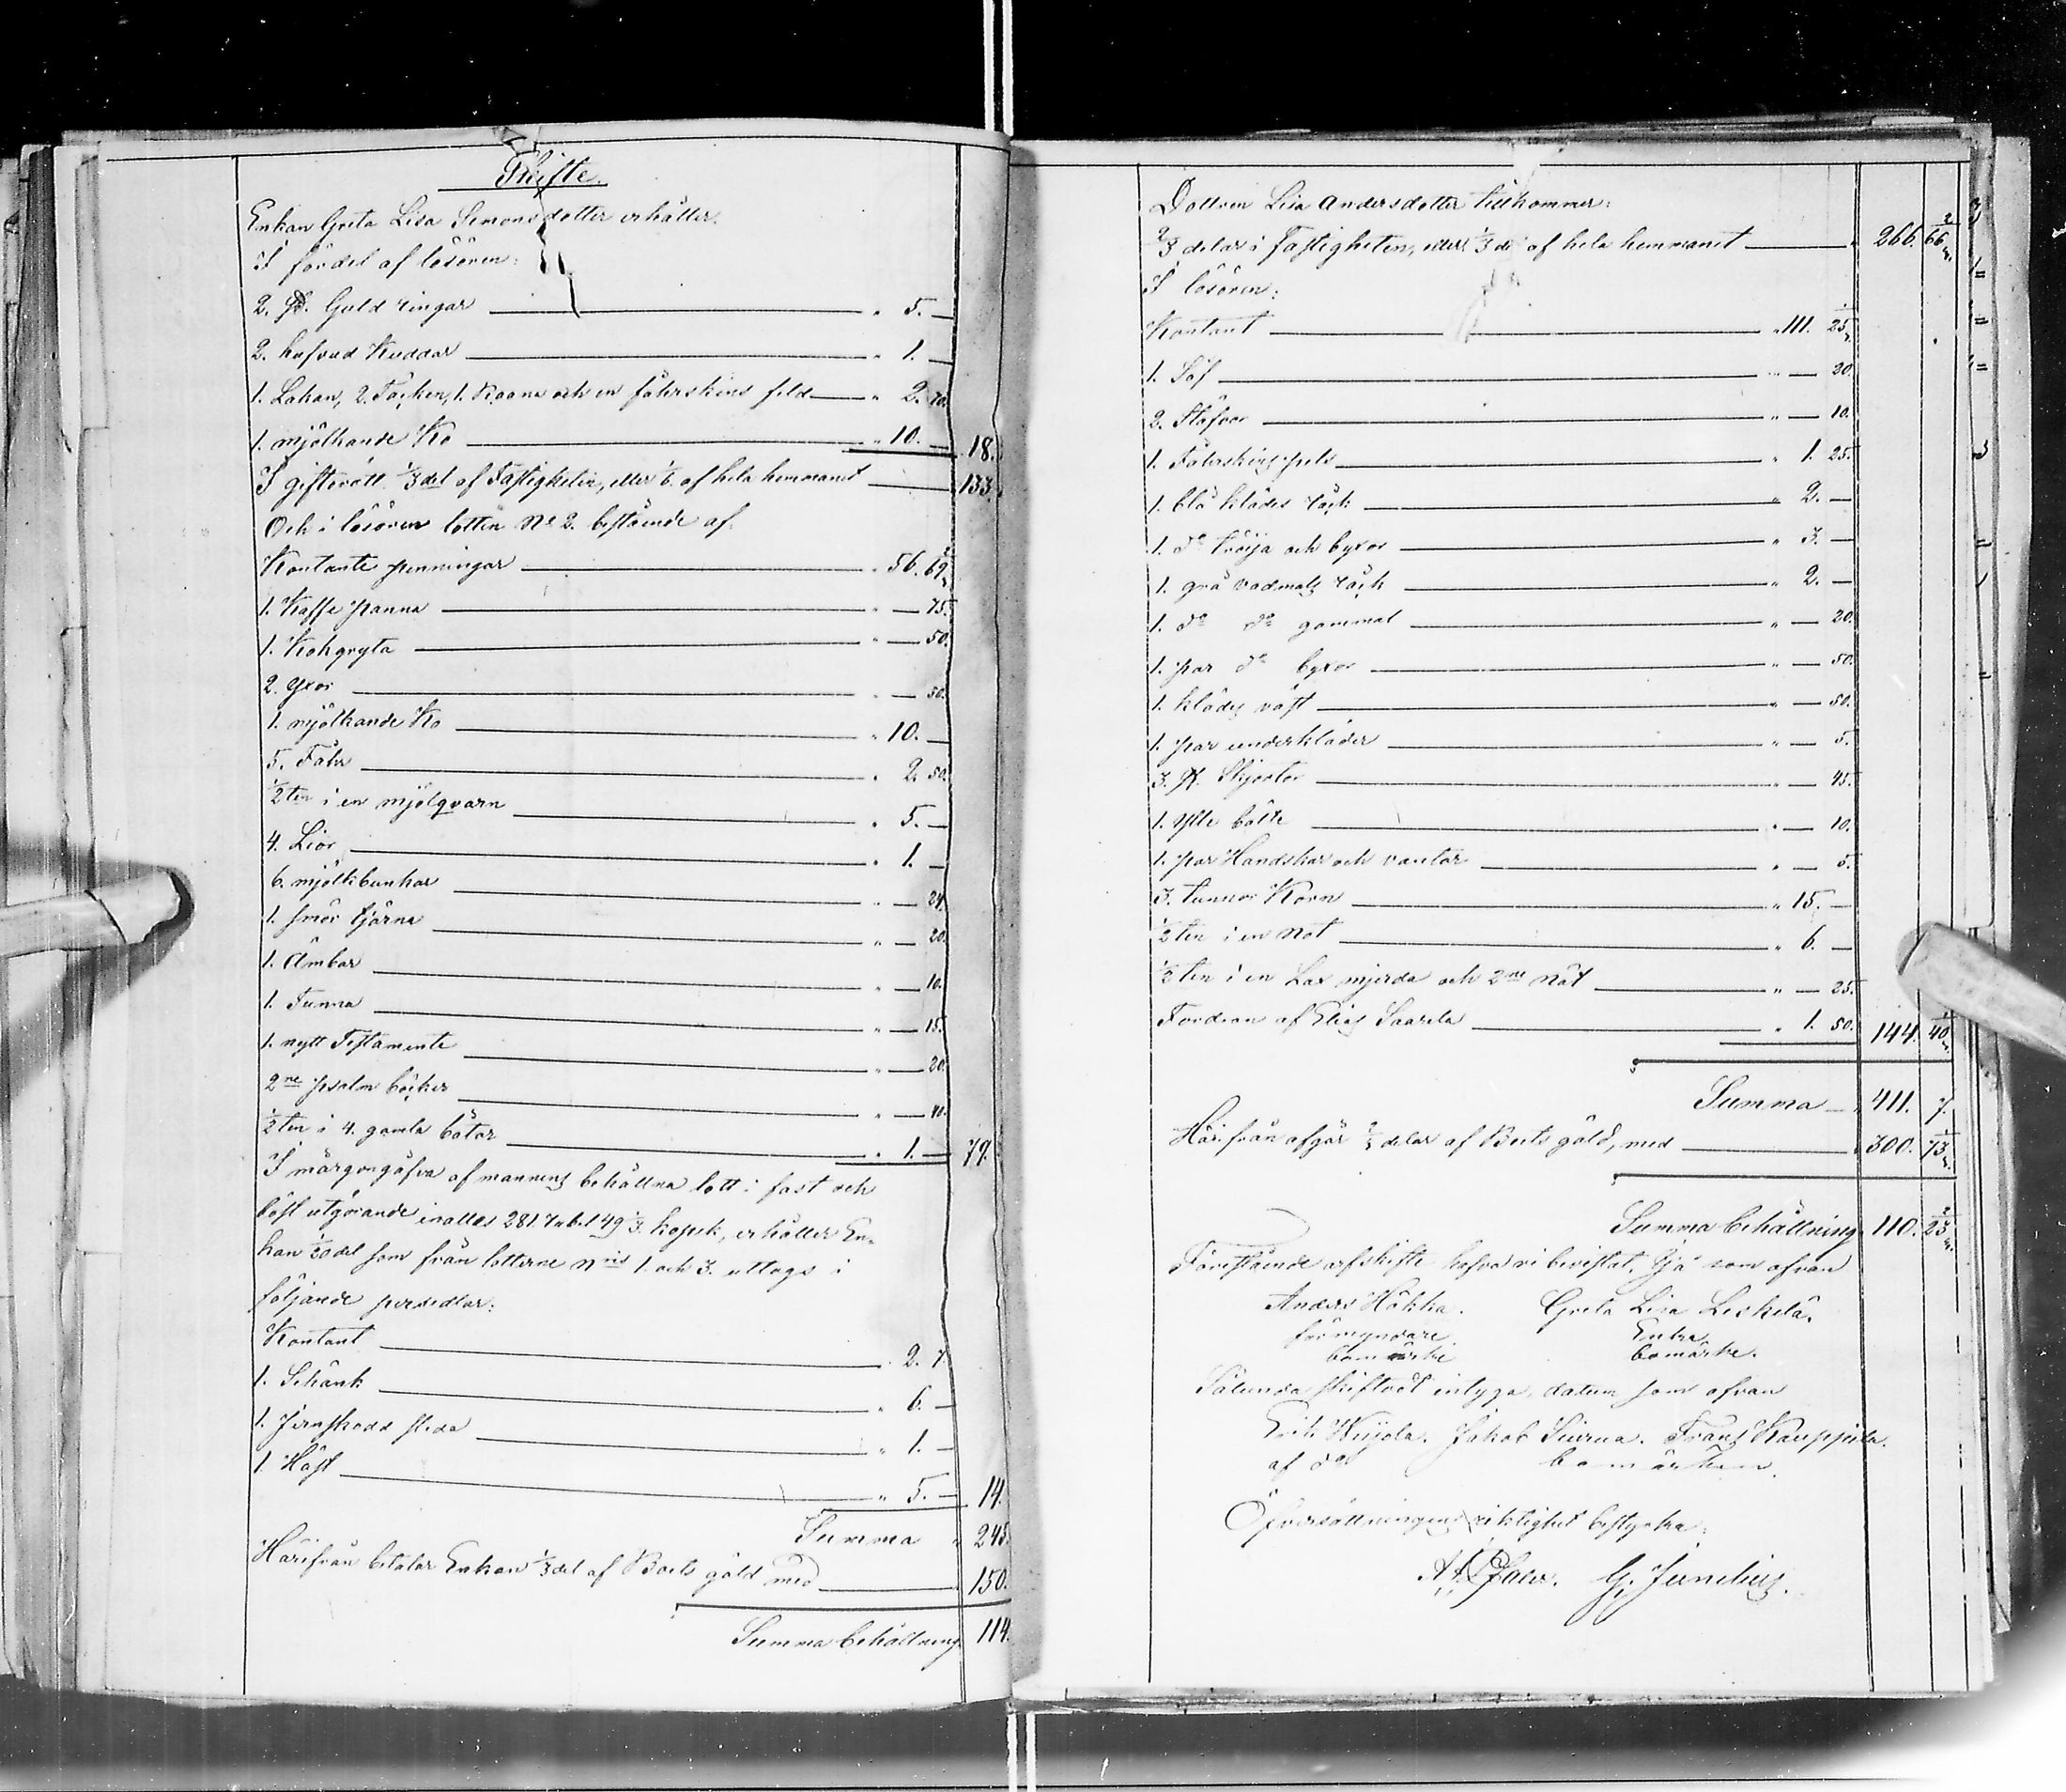 Skifte.
Enkan Greta Lisa Simonsdotter erhåller.
I fördel af lösören:
2. st. Guld ringar " 5. —
2. hufvud Kuddar " 1. —
1. Lakan, 2. Täcken, 1. Raana och en fårskins fäld " 2. 70.
1. mjölkande Ko " 10. — 18.
I giftorätt 1/3 del af Fastigheten, eller 1/6 af hela hemmanet 133.
Och i lösören lotten No 2. bestående af.
Kontante penningar " 56. 69
1. Kaffe panna " — 75.
1. Kokgryta " — 50.
2. Yxor " — 50.
1. mjölkande Ko " 10. —
5. Får " 2. 50.
1/2 ten i en mjölqvarn " 5. —
4. Lior " 1. —
6. mjölkbunkar " — 24.
1. smör tjärna " — 20.
1. Ämbar " — 10.
1. Tunna " — 15.
1. nytt Testamente " — 20.
2ne psalm böcker " — 40.
1/2 ten i 4. gamla båtar " 1. — 79.
I morgongåfva af mannens behållna lott i fast och
löst utgörande inalles 281. Rubel 49 1/3. kopek, erhåller En-
kan 1/20 del som från lotterne Nris 1. och 3. uttogs i
följande persedlar:
Kontant " 2. 7
1. Schänk " 6. —
1. Jernskodd släde " 1. —
1. Häst " 5. — 14.
Summa " 245.
Härifrån betalar Enkan 1/3 del af Boets gäld med 150.
Summa behållning 114.
Dottren Lisa Andersdotter tillkommer:
2/3 delar i Fastigheten, eller 1/3 del af hela hemmanet 266. 66 2/3.
I lösören:
Kontant " 111. 25 1/3
1. Söf " — 20.
2. Stäfvor " — 10.
1. Fårskins pels " 1. 25.
1. blå klädes råck " 2. —
1. do tröija och byxor " 3. —
1. grå vadmals råck " 2. —
1. do do gammal " — 20.
1. par do byxor " — 50.
1. klädes väst " — 50.
1. par underkläder " — 5.
3. st. Skjortor " — 45.
1. ylle bälte " — 10.
1. par Handskar och vantar " — 5.
3. tunnor Korn " 15. —
1/2 ten i en Not " 6. —
1/2 ten i en Lax mjerda och 2ne nät " — 25.
Fordran af Elias Saarela " 1. 50. 144. 40 1/3.
Summa 411. 7.
Härifrån afgår 2/3 delar af Boets gäld, med 300. 73 1/3.
Summa behållning 110. 23 2/3.
Förestående arfskifte hafva vi bevistat, Tja som ofvan
Anders Häkka. Greta Lisa Leskelä.
förmyndare Enka
bomärke bomärke.
Sålunda skiftadt intyga, datum som ofvan
Erik Kujola. Jakob Siurua. Frans Kauppila.
af do bomärken.
Öfversättningens riktighet bestyrka:
G. Junelius.